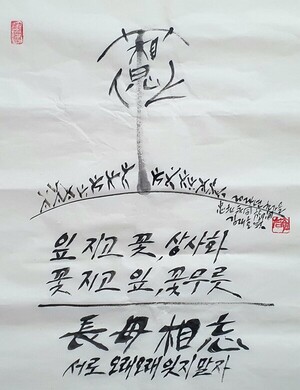 相思
잎 지고 꽃, 상사화
꽃 지고 잎, 꽃무릇
長毋相忘
서로 오래오래 잊지 말자